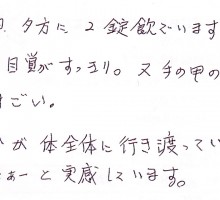 夕方に2錠飲でいます
目覚がすっきり。又手の甲の
すごい。
が体全体に行き渡ってい
ぁーと実感しています。